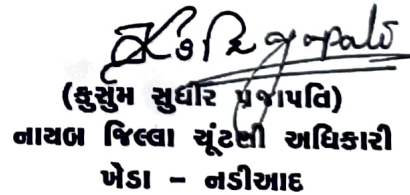 (કુસુમ સુધીર પ્રજાપતિ)
નાયબ જિલ્લા ચૂંટણી અધિકારી
ખેડા - નડીઆદ